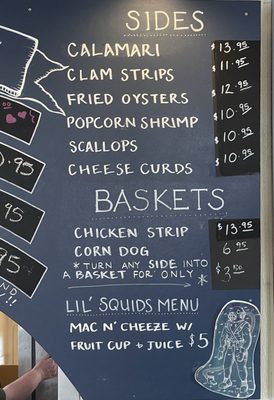 SIDES
CALAMARI $13.95
CLAM STRIPS $11.95
FRIED OYSTERS 12.95
POPCORN SHRIMP 10.95
SCALLOPS 10.95
CHEESE CURDS 10.95
BASKETS
CHICKEN STRIP $13.95
CORN DOG 6.95
*TURN ANY SIDE INTO
A BASKET FOR ONLY * $3.00
LIL' SQUIDS MENU
MAC N' CHEEZE W/
FRUIT CUP + JUICE $5
.95
95
95